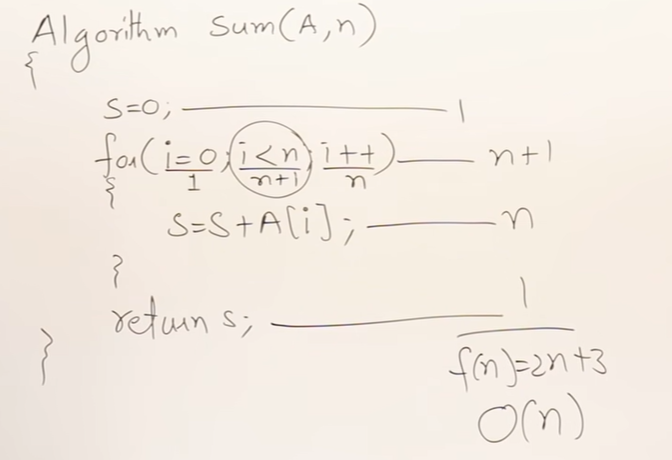 Algorithm Sum(A,n)
{
S=0; 1
for(i=0; i<n; i++) n+1
1 n+1 n
{
S=S+A[i]; n
}
return s; 1
}
f(n)=2n+3
O(n)